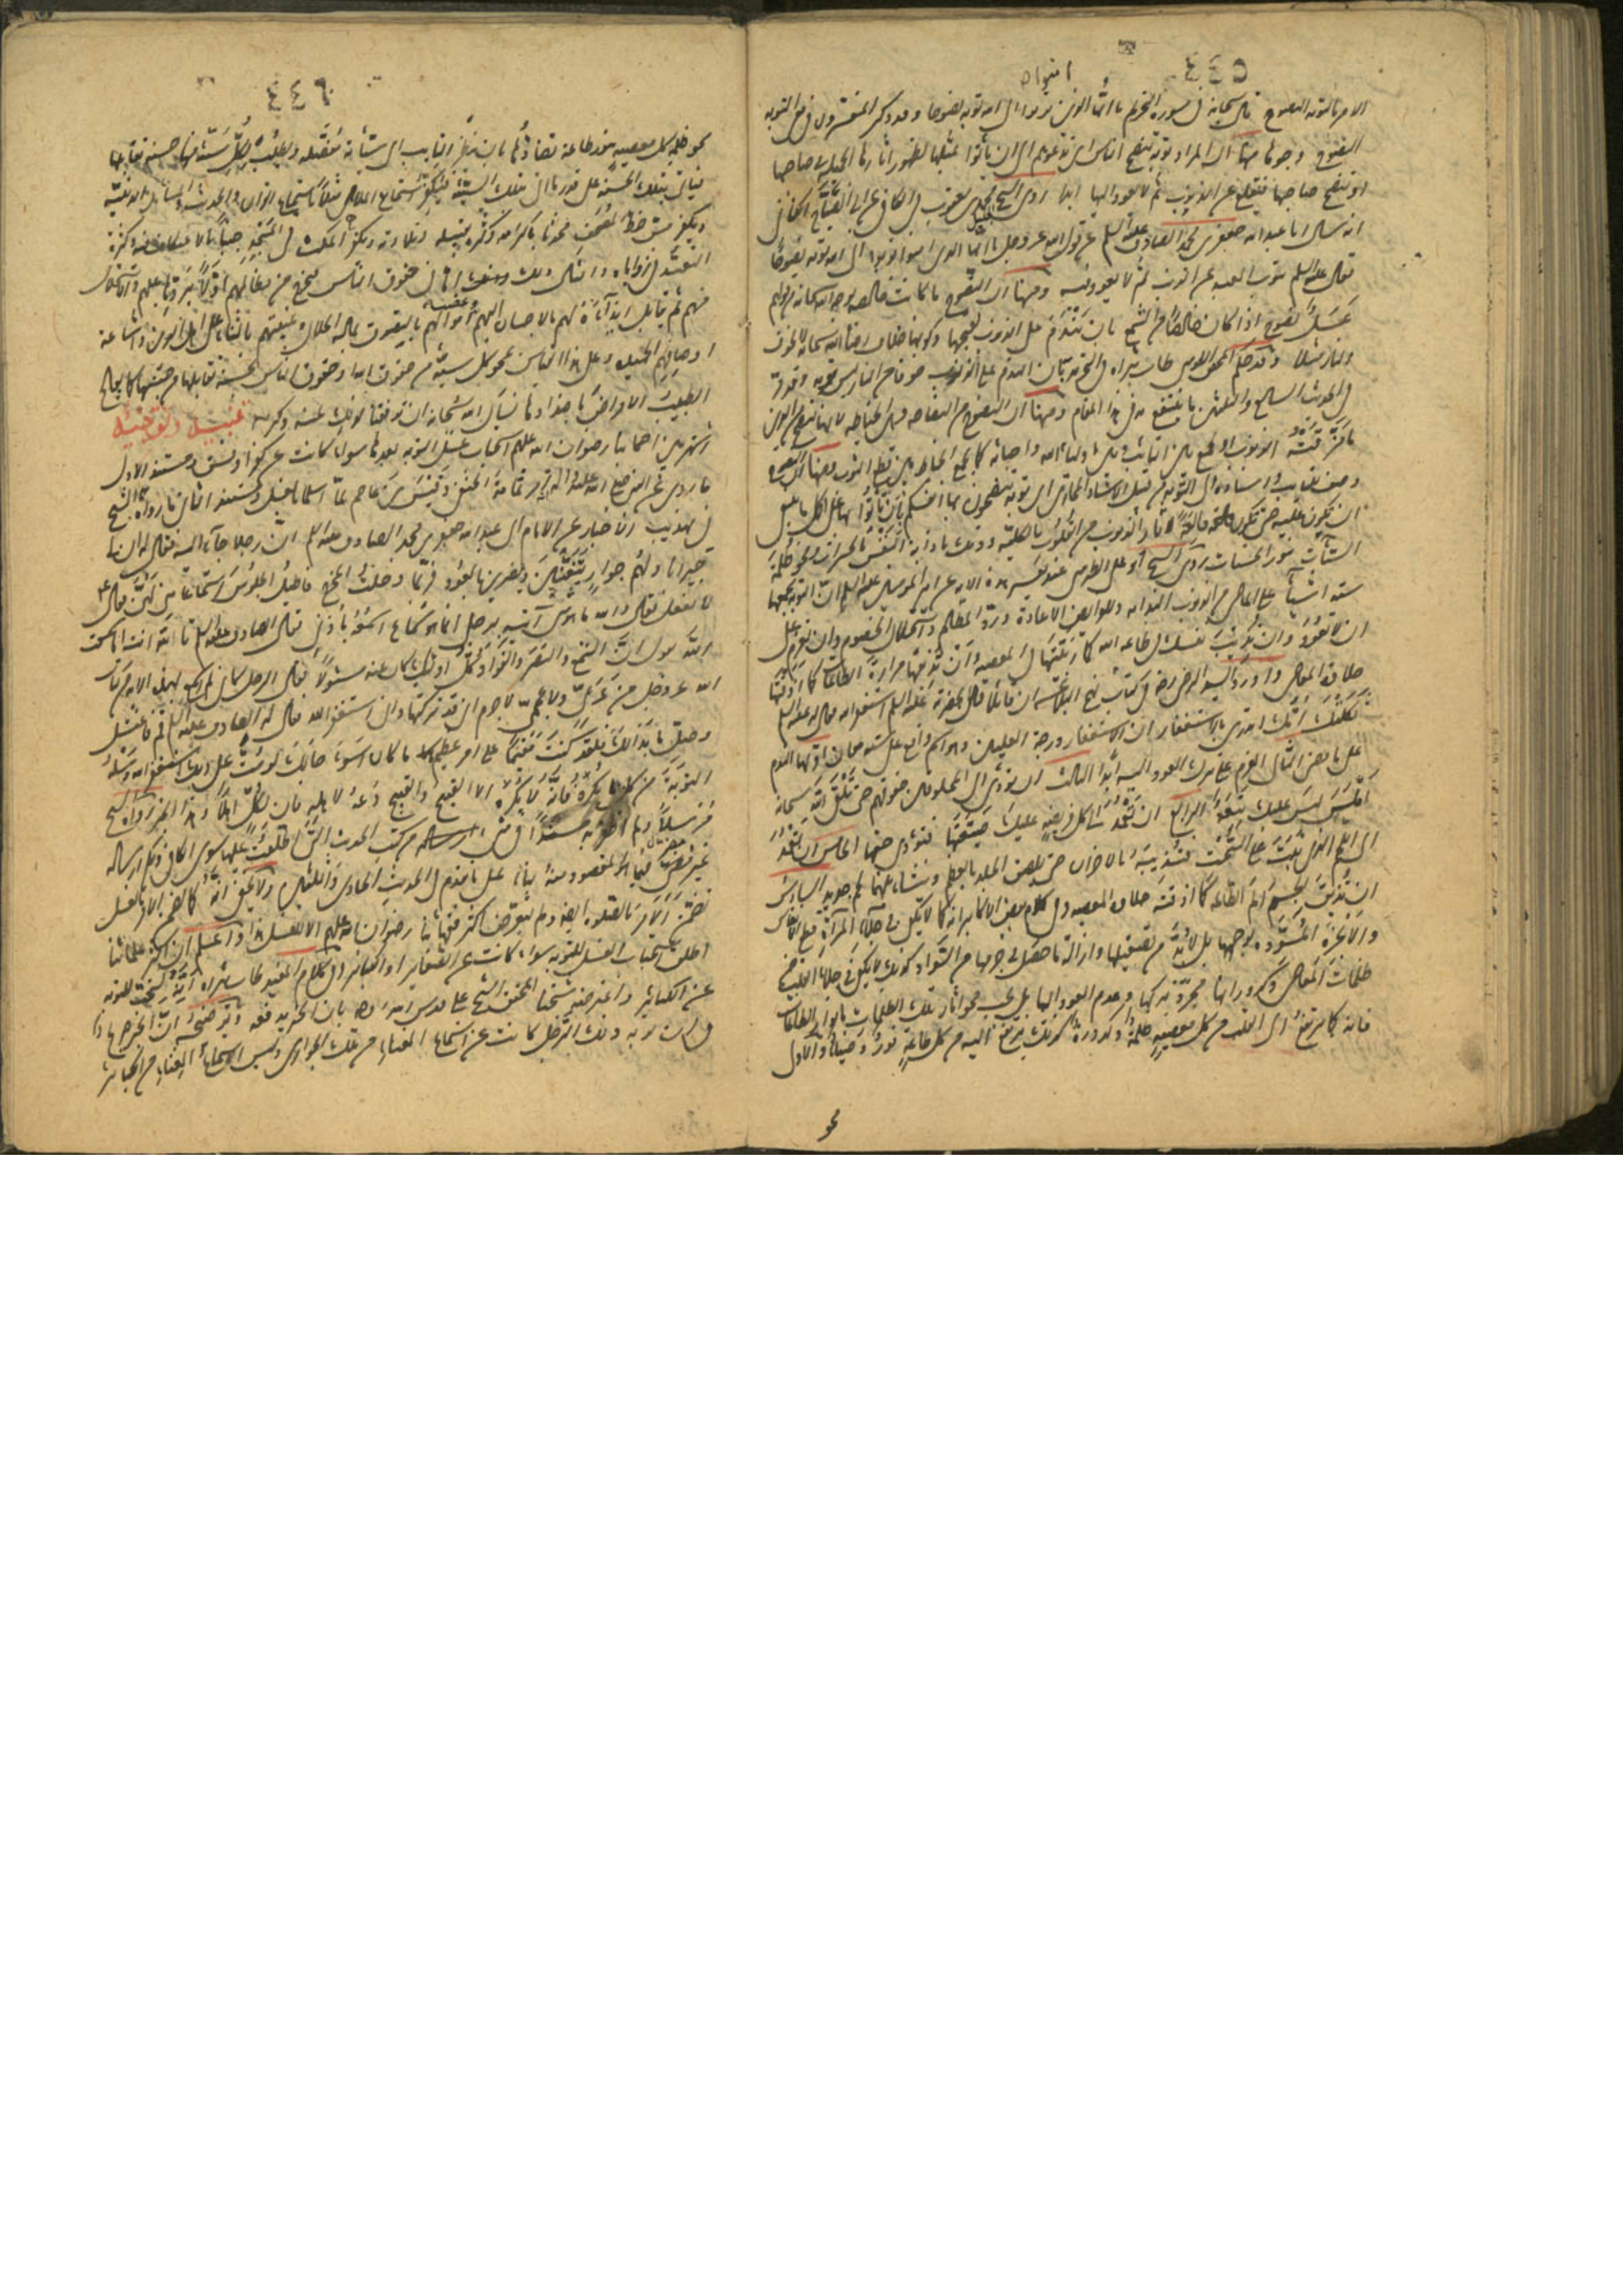 ٤٤٥
الامر بالتوبه النصوح قال سبحانه في سورة التحريم يا ايها الذين توبوا الى الله توبه نصوحا وقد ذكر المفسرون في معنى التوبه
النصوح وجوها منها ان المراد توبه تنصح الناس اى تدعوهم الى ان يأتوا بمثلها لظهور اثارها الجميله في صاحبها
او تنصح صاحبها فيقلع عن الذنوب ثم لا يعود اليها ابدا روى الشيخ محمد بن يعقوب في الكافي عن ابي الصباح الكناني
انه سأل ابا عبد الله جعفر بن محمد الصادق عليه السلم عن قول الله عز وجل يا ايها الذين امنوا توبوا الى الله توبه نصوحا
فقال عليه السلم يتوب العبد عن الذنب ثم لا يعود فيه ومنها ان النصوح ما كانت خالصه لوجه الله سبحانه من قولهم
عسل نصوح اذا كان خالصا من الشمع بان يندم على الذنوب لقبحها وكونها خلاف رضا الله سبحانه لا لخوف
النار مثلا وقد حكم المحقق الطوسي طاب ثراه في التجريد بان الندم على الذنوب خوفا من النار ليس توبه وقد مر
في الحديث السابع والثلثين ما ينتفع به في هذا المقام ومنها ان النصوح من النصاحه وهي الخياطه لانها تنصح من الدين
ما مزقته الذنوب او تجمع بين التائب وبين اولياء الله واحبائه كما تجمع الخياطه بين قطع الثوب ومنها ان النصوح
وصف للتائب واسناده الى التوبه من قبيل الاسناد المجازى اى توبه تنصحون بها انفسكم بان تأتوا بها على اكمل ما ينبغي
ان تكون عليه حتى تكون قالعة لاثار الذنوب من القلوب بالكليه وذلك باذابة النفس بالحسرات ومحو ظلمة
السيات بنور الحسنات روى الشيخ ابو علي الطبرسي عند تفسير هذه الايه عن امير المؤمنين عليه السلم ان التوبه تجمعها
سته اشياء على الماضي من الذنوب الندامه وللفرائض الاعادة ورد المظالم واستحلال الخصوم وان تعزم على
ان لا تعود وان تذيب نفسك في طاعه الله كما ربيتها في المعصيه وان تذيقها مرارة الطاعات كما اذقتها
حلاوة المعاصي واورد السيد الرضي رضه في كتاب نهج البلاغه ان قائلا قال بحضرته عليه السلم استغفر الله فقال له عليه السلم
ثكلتك امك اتدري ما الاستغفار ان الاستغفار درجة العليين وهو اسم واقع على سته معان اولها الندم
على ما مضى الثاني العزم على ترك العود اليه ابدا الثالث ان تؤدي الى المخلوقين حقوقهم حتى تلقى الله سبحانه
املس ليس عليك تبعه الرابع ان تعمد الى كل فريضه عليك ضيعتها فتؤدي حقها الخامس ان تعمد
الى اللحم الذي نبت على السحت فتذيبه بالاحزان حتى يلصق الجلد بالعظم وينشأ بينهما لحم جديد السادس
ان تذيق الجسم الم الطاعه كما اذقته حلاوة المعصيه وفي كلام بعض الاكابر انه كما لا يكفي في جلاء المرآة قطع الانفاس
والابخرة المسوده لوجهها بل لا بد من تصقيلها وازالة ما حصل في جرمها من السواد كذلك لا يكفي في جلاء القلب من
ظلمات المعاصي وكدوراتها مجرد تركها وعدم العود اليها بل يجب محو اثار تلك الظلمات بانوار الطاعات
فانه كما يرتفع الى القلب من كل معصيه ظلمة وكدورة كذلك يرتفع اليه من كل طاعة نور وضياء والاولى
محو
٤٤٦
محو ظلمة كل معصيه بنور طاعة تضادها بان ينظر التائب الى سيئاته مفصله ويطلب لكل سيئة منها حسنة تقابلها
فيأتي بتلك الحسنة على قدر ما اتى بتلك السيئة فيكفر استماع الملاهي مثلا باستماع القران والحديث والمسائل الدينية
ويكفر مس خط المصحف محدثا باكرامه وكثرة تقبيله وتلاوته ويكفر المكث في المسجد جنبا بالاعتكاف فيه وكثرة
التعبد في زواياه وامثال ذلك واما في حقوق الناس فيخرج من مظالمهم اولا بردها عليهم والاستحلال
منهم ثم يقابل ايذاءه لهم بالاحسان اليهم وغصب اموالهم بالتصدق بماله الحلال وغيبتهم بالثناء على اهل الدين واشاعة
اوصافهم الحميده وعلى هذا القياس يمحو كل سيئه من حقوق الله او حقوق الناس بحسنة تقابلها من جنسها كما يعالج
الطبيب الامراض باضدادها نسأل الله سبحانه ان يوفقنا لذلك بمنه وكرمه تنبيه وتوضيح
اشتهر بين اصحابنا رضوان الله عليهم استحباب غسل التوبه بعدها سواء كانت عن كفر او فسق ومستند الاول
ما روى عن النبي صلى الله عليه واله انه امر ثمامة الحنفي وقيس بن عاصم لما اسلما بالغسل ومستند الثاني ما رواه الشيخ
في تهذيب الاخبار عن الامام ابي عبد الله جعفر بن محمد الصادق عليه السلم ان رجلا جاء اليه فقال له ان لي
جيرانا ولهم جوار يتغنين ويضربن بالعود فربما دخلت المخرج فاطيل الجلوس استماعا مني لهن فقال عه
لا تفعل فقال والله ما هو شيء آتيه برجلي انما هو سماع اسمعه باذني فقال الصادق عليه السلم تالله انت اما سمعت
الله يقول ان السمع والبصر والفؤاد كل اولئك كان عنه مسئولا فقال الرجل كاني لم اسمع بهذه الايه من كتاب
الله عز وجل من عربي ولا عجمي لا جرم اني قد تركتها واني استغفر الله فقال له الصادق عليه السلم قم فاغتسل
وصل ما بدا لك فلقد كنت مقيما على امر عظيم ما كان اسوء حالك لو مت على ذلك استغفر الله وسئله
التوبة من كل ما يكره فانه لا يكره الا القبيح والقبيح دعه لاهله فان لكل اهلا وهذا الخبر رواه الشيخ
مرسلا ولم اظفر به مسندا في شيء من كتب الحديث التي اطلعت عليها سوى الكافي وكم ارساله
غير مضر فيما هو المقصود منه بناء على ما تقدم في الحديث الحادي والثلثين ولا يخفى انه كما تضمن الامر بالغسل
تضمن الامر بالصلوة ايضا ولم يتعرض اكثر فقهائنا رضوان الله عليهم الا للغسل هذا واعلم ان اكثر علمائنا
اطلق استحباب الغسل للتوبه سواء كانت عن الصغاير او الكبائر وفي كلام المفيد طاب ثراه انه يستحب للتوبه
عن الكبائر واعترضه شيخنا المحقق الشيخ علي قدس الله روحه بان الخبر يدفعه وتوضيحه ان الخبر صريح
في ان توبه ذلك الرجل كانت عن استماع الغناء من تلك الجوارى وليس استماع الغناء من الكبائر